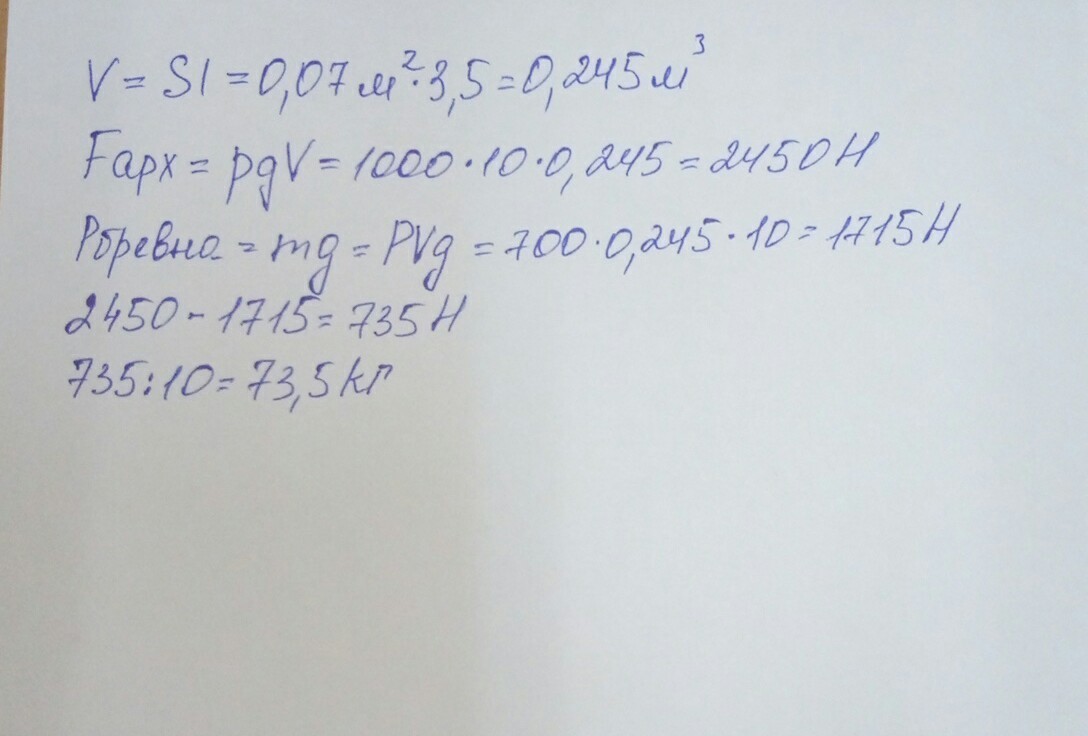 V = Sl = 0,07 м² · 3,5 = 0,245 м³
Fарх = pgV = 1000 · 10 · 0,245 = 2450 Н
Pбревна = mg = PVg = 700 · 0,245 · 10 = 1715 Н
2450 - 1715 = 735 Н
735 : 10 = 73,5 кг